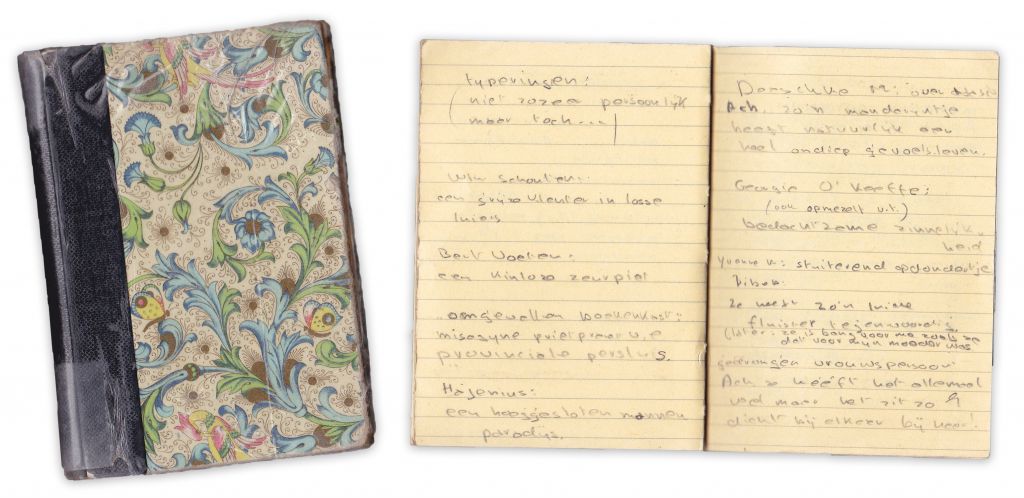 typeringen:
(niet zozeer persoonlijk
maar toch...)
Wim Schouten:
een grijze kleuter in losse
luiers
Bert Voeten:
een kinloze zeurpiet
"omgevallen boekenkast":
misogyne
provinciale
Hajenius:
een hooggesloten mannen
paradijs.
over
Ach, zo'n mandarijntje
heeft natuurlijk een
heel ondiep gevoelsleven.
Georgia O'Keeffe:
(ook opmerking v.t.)
bedachtzame zinnelijk-
heid
Yvonne K: stuiterend opdondertje
Ze heeft zo'n
fluister tegenwoordig
(later: ze is bang voor me zoals ze
dat voor mijn moeder was
gedrongen vrouwspersoon
Ach ze heeft het allemaal
wel maar het zit zo
dicht bij elkaar bij haar.